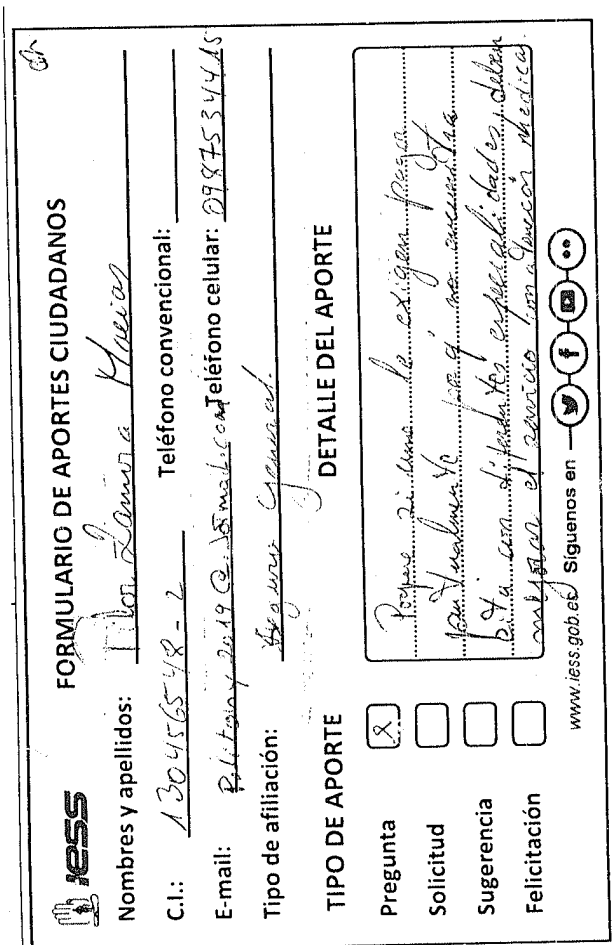 iess
FORMULARIO DE APORTES CIUDADANOS
Nombres y apellidos: Zamora Macias
C.I.: 130456548-2 Teléfono convencional:
E-mail: Teléfono celular: 0987534415
Tipo de afiliación: Seguro General.
TIPO DE APORTE
DETALLE DEL APORTE
Pregunta x
Solicitud
Sugerencia
Felicitación
Porque si uno le exigen pagar
puntualmente y no encuentra
con diferentes especialidades, deben
mejorar el servicio con atención medica.
www.iess.gob.ec Síguenos en